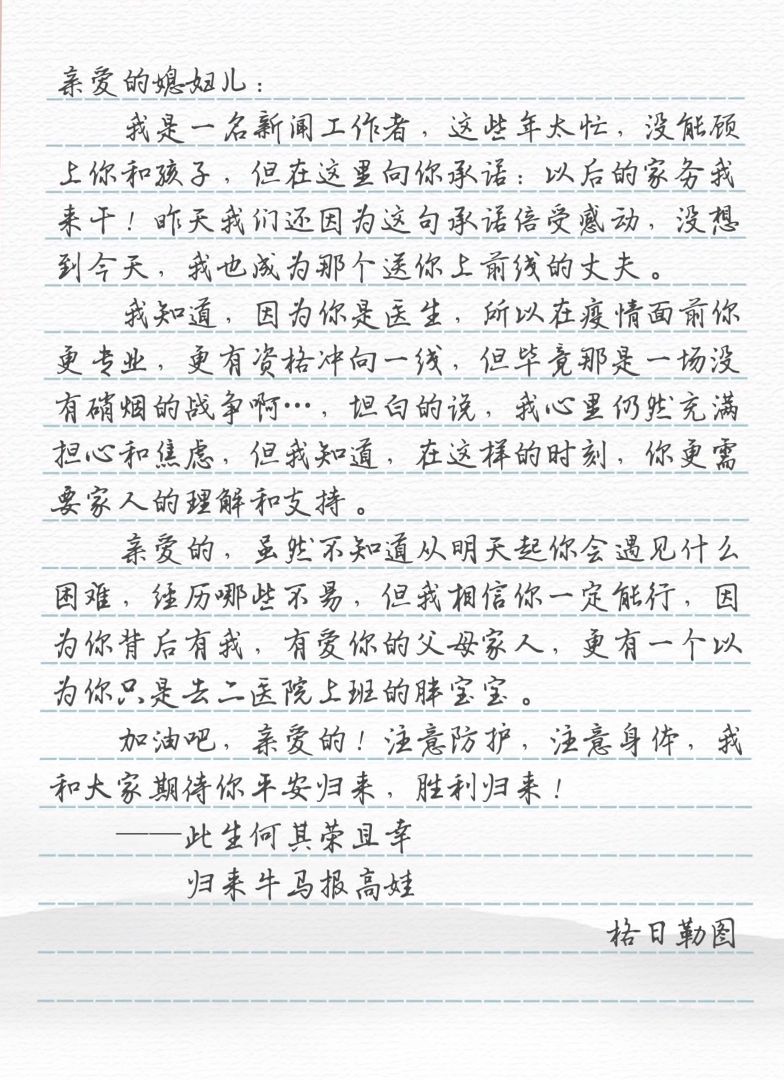 亲爱的媳妇儿：
我是一名新闻工作者，这些年太忙，没能顾
上你和孩子，但在这里向你承诺：以后的家务我
来干！昨天我们还因为这句承诺倍受感动，没想
到今天，我也成为那个送你上前线的丈夫。
我知道，因为你是医生，所以在疫情面前你
更专业，更有资格冲向一线，但毕竟那是一场没
有硝烟的战争啊…，坦白的说，我心里仍然充满
担心和焦虑，但我知道，在这样的时刻，你更需
要家人的理解和支持。
亲爱的，虽然不知道从明天起你会遇见什么
困难，经历哪些不易，但我相信你一定能行，因
为你背后有我，有爱你的父母家人，更有一个以
为你只是去二医院上班的胖宝宝。
加油吧，亲爱的！注意防护，注意身体，我
和大家期待你平安归来，胜利归来！
——此生何其荣且幸
归来牛马报高娃
格日勒图